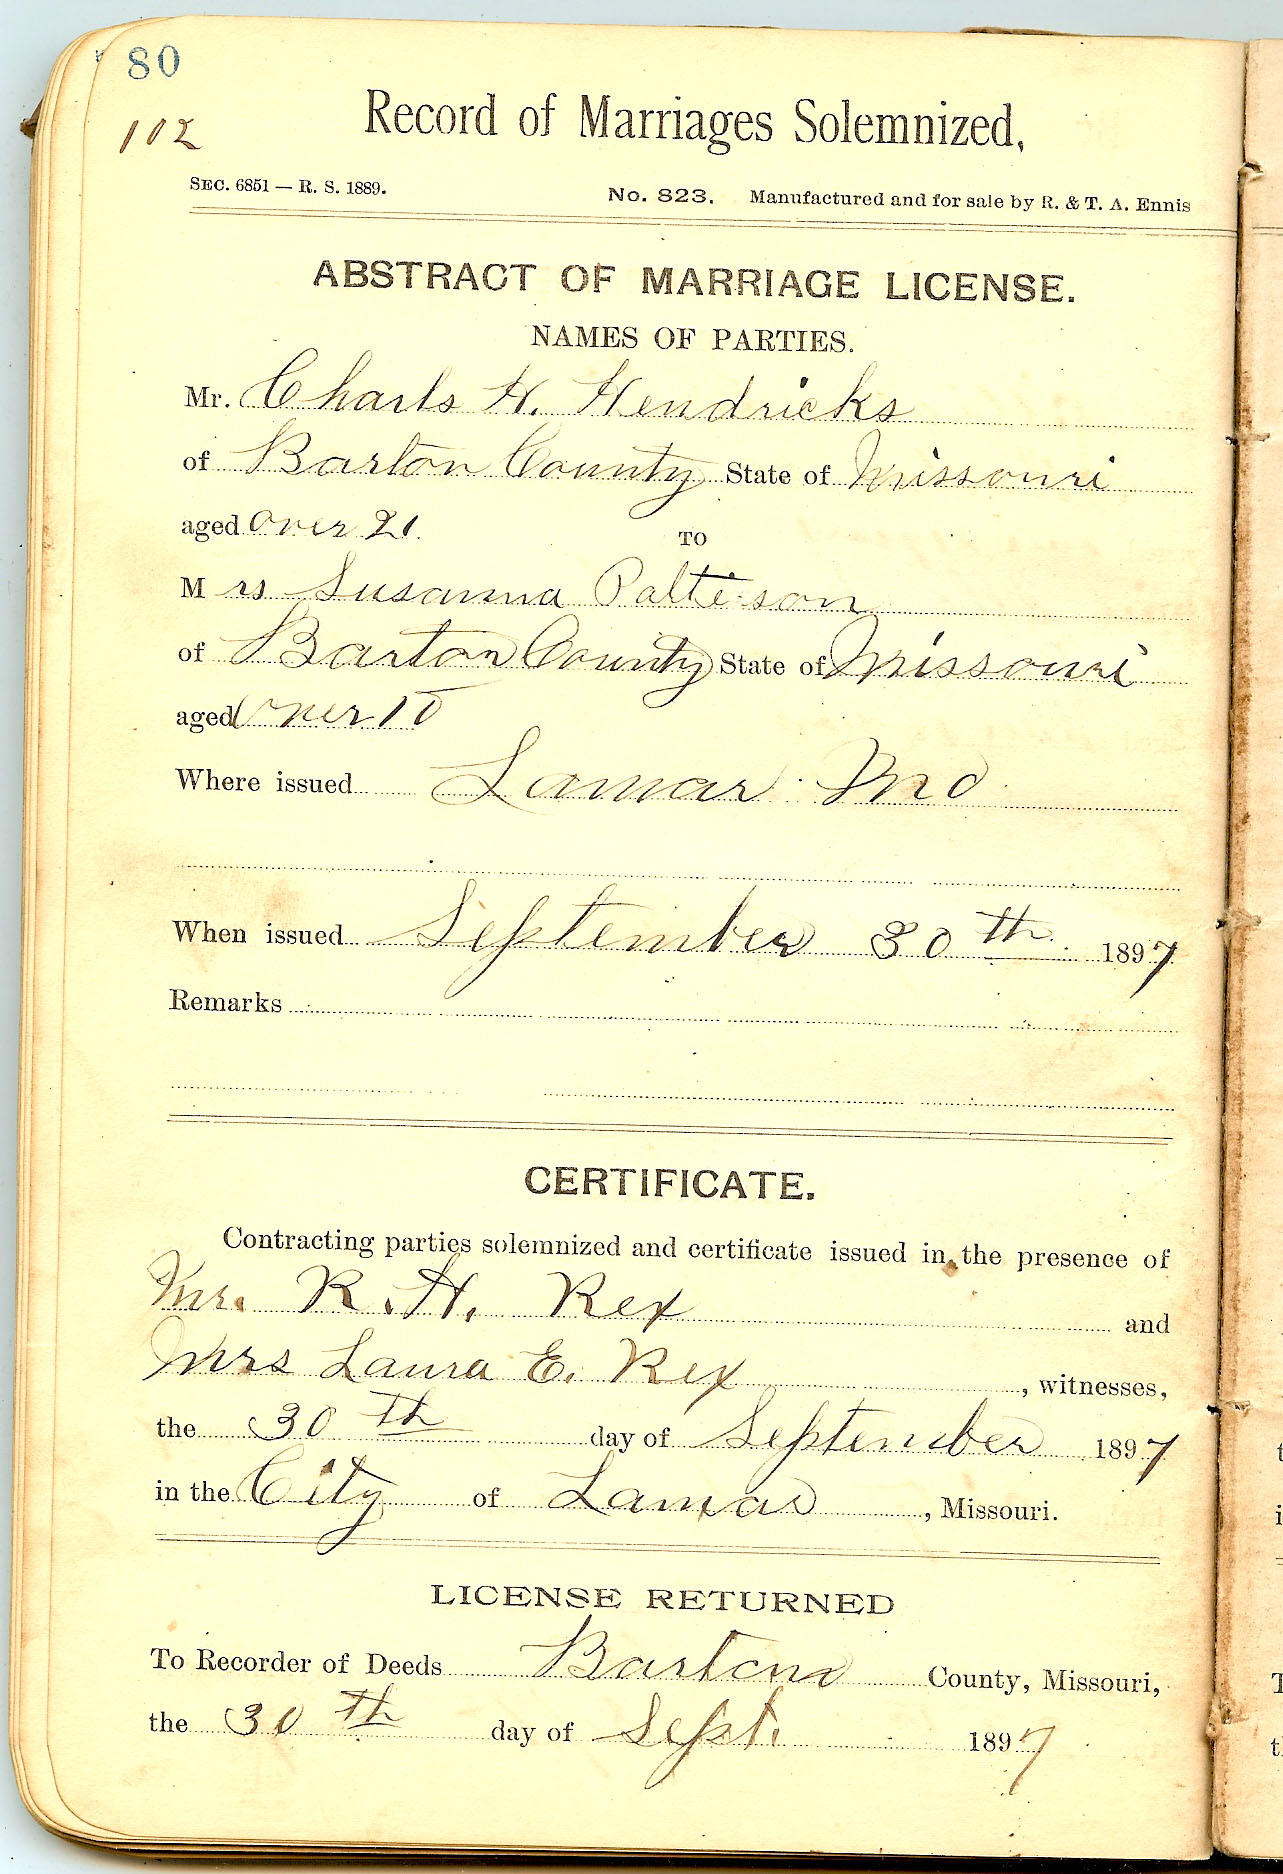 80
102
Record of Marriages Solemnized,
SEC. 6851 — R. S. 1889. No. 823. Manufactured and for sale by R. & T. A. Ennis
ABSTRACT OF MARRIAGE LICENSE.
NAMES OF PARTIES.
Mr. Charls H. Hendricks
of Barton County State of Missouri
aged over 21. TO
Mrs Susanna Patterson
of Barton County State of Missouri
aged Over 18
Where issued Lamar Mo
When issued September 30th 1897
Remarks
CERTIFICATE.
Contracting parties solemnized and certificate issued in the presence of
Mr. R. H. Rex and
Mrs Laura E. Rex, witnesses,
the 30th day of September 1897
in the City of Lamar, Missouri.
LICENSE RETURNED
To Recorder of Deeds Barton County, Missouri,
the 30th day of Sept. 1897